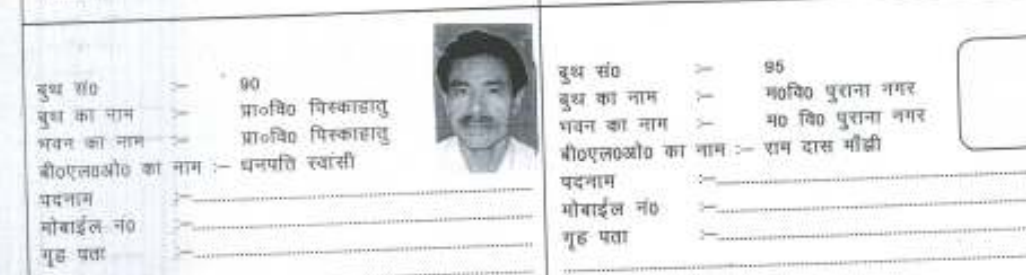 बुथ सं0 :- 90
बुथ का नाम :- प्रा०वि० पिस्काहातु
भवन का नाम :- प्रा०वि० पिस्काहातु
बी0एल0ओ0 का नाम :- धनपति स्वासी
पदनाम :-
मोबाईल नं0 :-
गृह पता :-
बुथ सं0 :- 95
बुथ का नाम :- म0वि0 पुराना नगर
भवन का नाम :- म0 वि0 पुराना नगर
बी0एल0ओ0 का नाम :- राम दास माँझी
पदनाम :-
मोबाईल नं0 :-
गृह पता :-